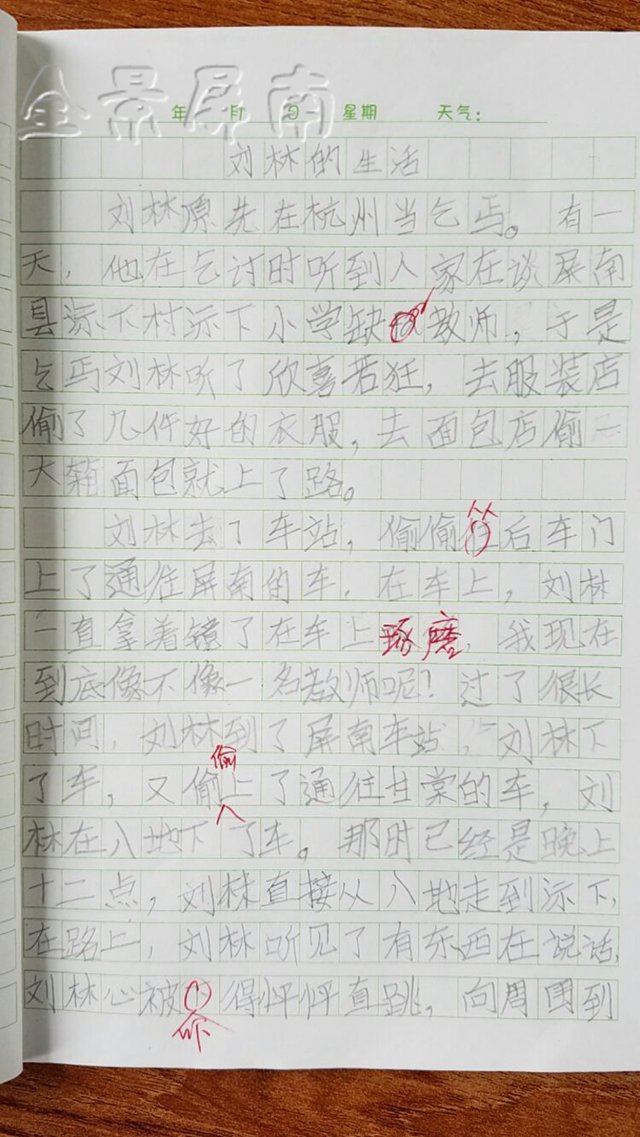 全景屏南
年 月 日 星期 天气:
刘林的生活
刘林原先在杭州当乞丐。有一
天,他在乞讨时听到人家在谈屏南
县漈下村漈下小学缺教师,于是
乞丐刘林听了欣喜若狂,去服装店
偷了几件好的衣服,去面包店偷一
大箱面包就上了路。
刘林去了车站,偷偷从后车门
上了通往屏南的车,在车上,刘林
一直拿着镜了在车上琢磨,我现在
到底像不像一名教师呢?过了很长
时间,刘林到了屏南车站,刘林下
了车,又偷偷上了通往甘棠的车,刘
林在八地下了车。那时已经是晚上
十二点,刘林直接从八地走到漈下,
在路上,刘林听见了有东西在说话,
刘林心被吓得怦怦直跳,向周围到